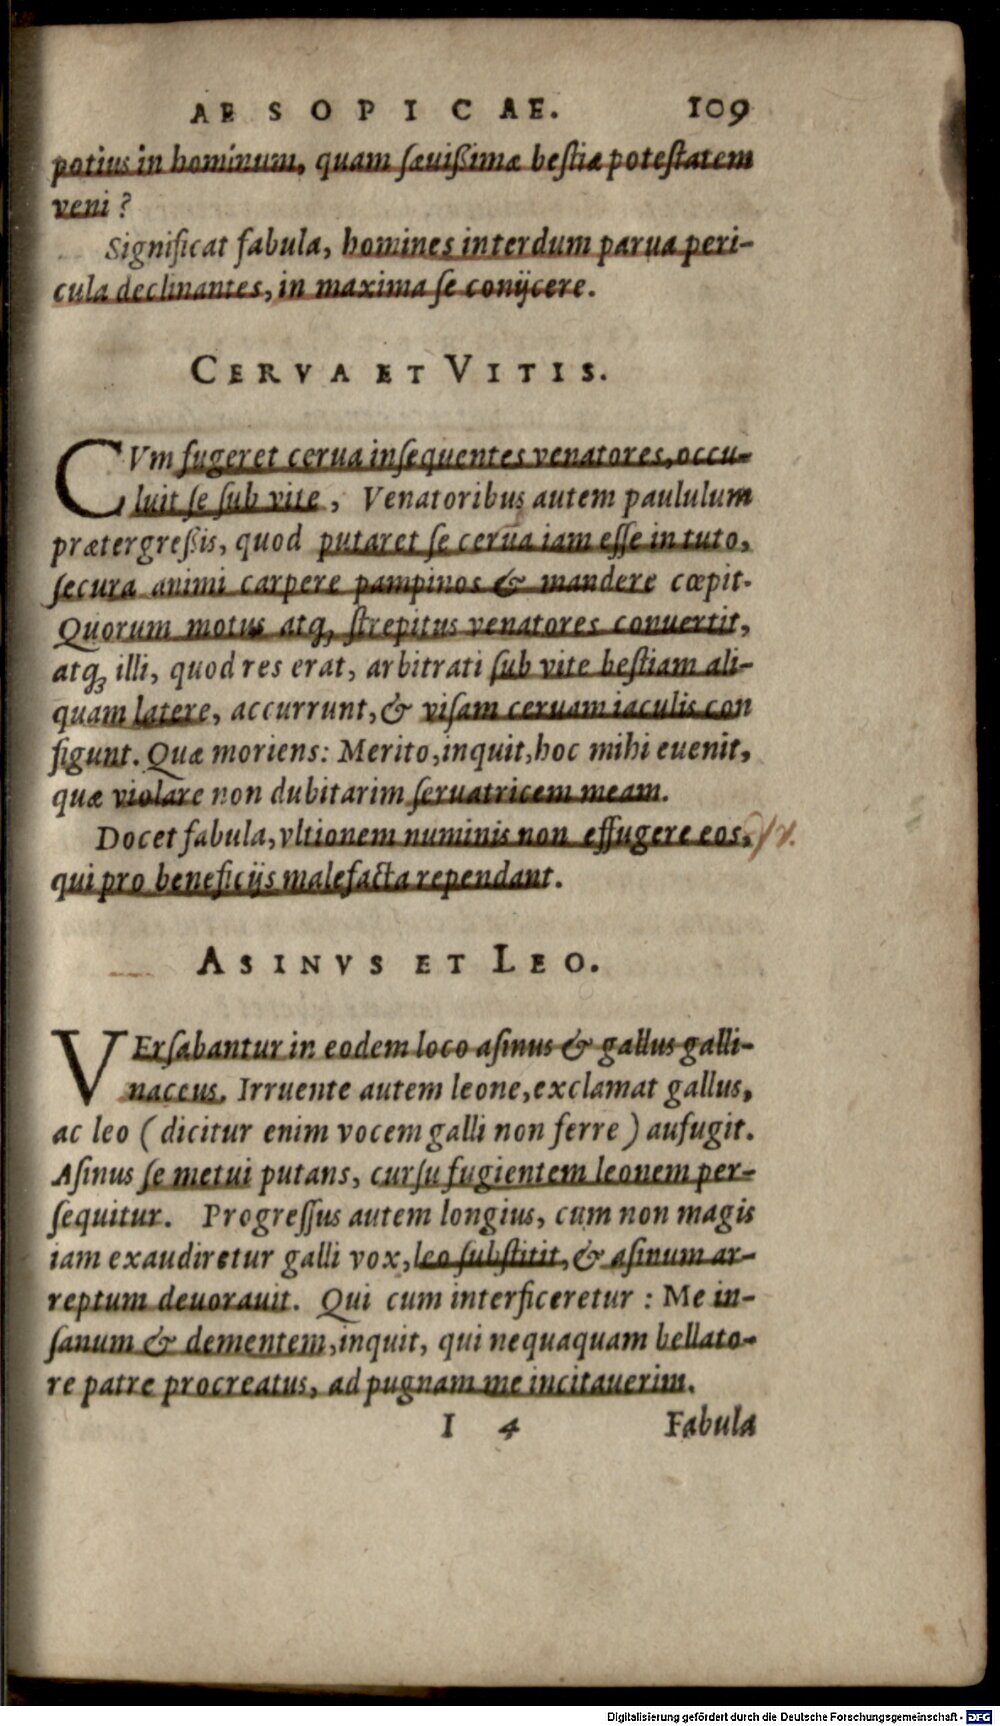 AESOPICAE. 109
potius in hominum, quam sæuißimæ bestiæ potestatem
veni?
Significat fabula, homines interdum parua peri-
cula declinantes, in maxima se conijcere.
CERVA ET VITIS.
CVm fugeret cerua insequentes venatores, occu-
luit se sub vite, Venatoribus autem paululum
prætergreßis, quod putaret se cerua iam esse in tuto,
secura animi carpere pampinos & mandere cœpit.
Quorum motus atq; strepitus venatores conuertit,
atq; illi, quod res erat, arbitrati sub vite bestiam ali-
quam latere, accurrunt, & visam ceruam iaculis con
figunt. Quæ moriens: Merito, inquit, hoc mihi euenit,
quæ violare non dubitarim seruatricem meam.
Docet fabula, vltionem numinis non effugere eos,
qui pro beneficijs malefacta rependant.
ASINVS ET LEO.
VErsabantur in eodem loco asinus & gallus galli-
naceus. Irruente autem leone, exclamat gallus,
ac leo (dicitur enim vocem galli non ferre) aufugit.
Asinus se metui putans, cursu fugientem leonem per-
sequitur. Progressus autem longius, cum non magis
iam exaudiretur galli vox, leo substitit, & asinum ar-
reptum deuorauit. Qui cum interficeretur: Me in-
sanum & dementem, inquit, qui nequaquam bellato-
re patre procreatus, ad pugnam me incitauerim.
I 4 Fabula
Digitalisierung gefördert durch die Deutsche Forschungsgemeinschaft - DFG